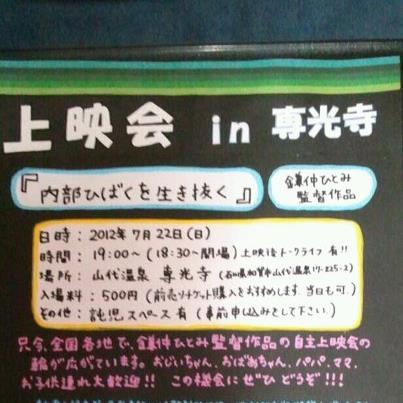 上映会 in 専光寺
『内部ひばくを生き抜く』
鎌仲ひとみ
監督作品
日時：2012年7月22日(日)
時間：19:00～(18:30～開場)上映後トークライブ有!!
場所：山代温泉 専光寺(石川県加賀市山代温泉17-225-2)
入場料：500円(前売りチケット購入をおすすめします。当日も可。)
その他：託児スペース有(事前申込みをして下さい)
只今、全国各地で、鎌仲ひとみ監督作品の自主上映会の
輪が広がています。おじいちゃん、おばあちゃん、パパ、ママ、
お子供連れ大歓迎!! この機会にぜひどうぞ!!!